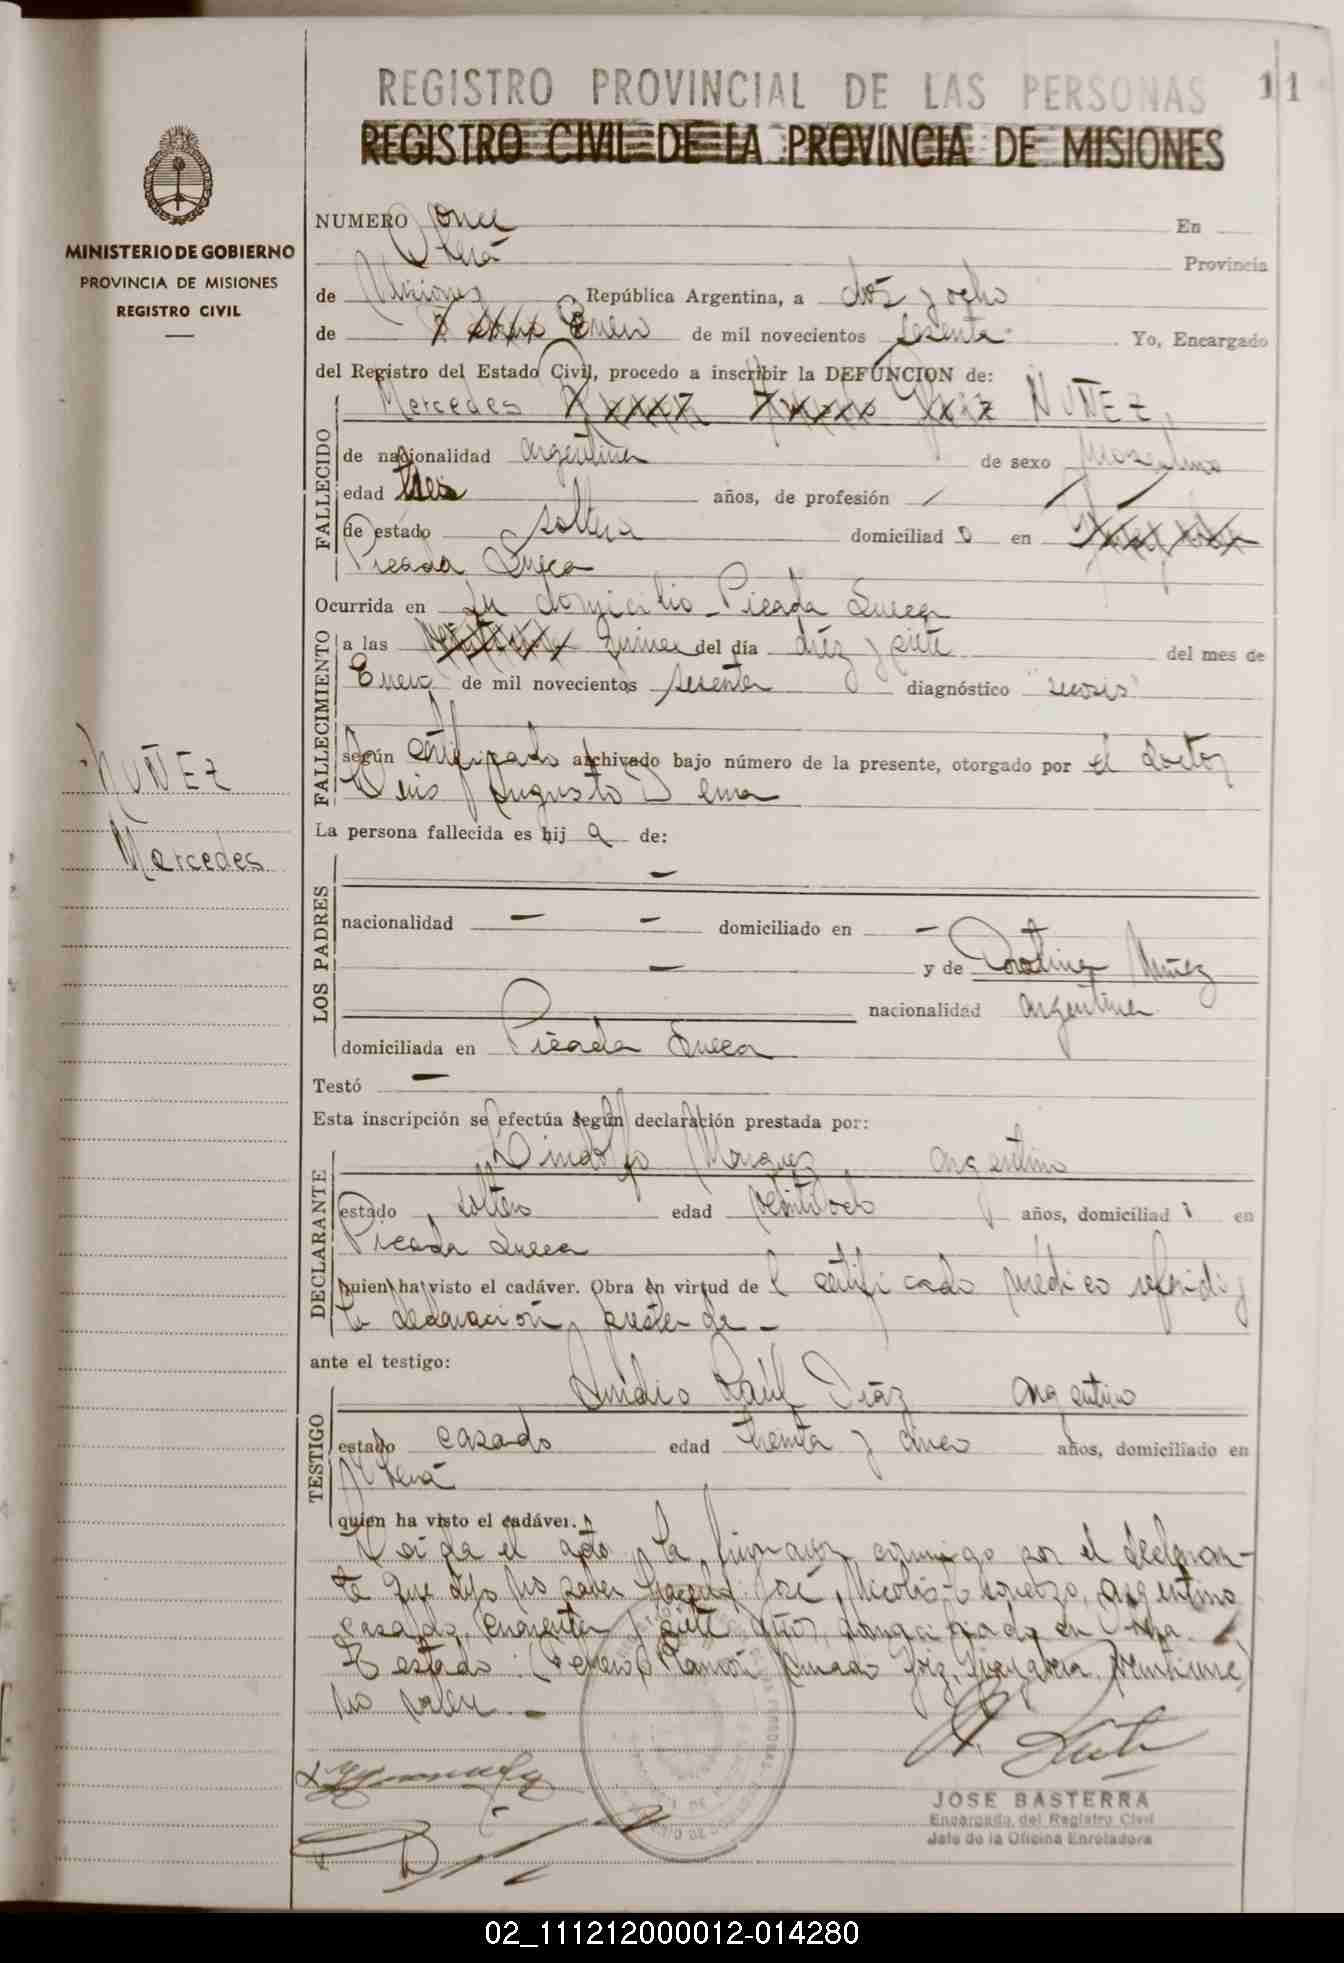 REGISTRO PROVINCIAL DE LAS PERSONAS 11
REGISTRO CIVIL DE LA PROVINCIA DE MISIONES
MINISTERIO DE GOBIERNO
PROVINCIA DE MISIONES
REGISTRO CIVIL
NUMERO Once En
Oberá Provincia
de Misiones República Argentina, a diez y ocho
de Enero de mil novecientos sesenta Yo, Encargado
del Registro del Estado Civil, procedo a inscribir la DEFUNCION de:
Mercedes NUÑEZ
FALLECIDO
de nacionalidad argentina de sexo
edad tres años, de profesión
de estado soltera domiciliad o en
Picada Sueca
Ocurrida en su domicilio - Picada Sueca
FALLECIMIENTO
a las quince del día diez y siete del mes de
Enero de mil novecientos sesenta diagnóstico
según certificado archivado bajo número de la presente, otorgado por el doctor
Luis Augusto
NUÑEZ
Mercedes
La persona fallecida es hij a de:
LOS PADRES
nacionalidad - - domiciliado en -
- y de Nuñez
nacionalidad argentina
domiciliada en Picada Sueca
Testó -
Esta inscripción se efectúa según declaración prestada por:
DECLARANTE
Lindolfo Marquez argentino
estado soltero edad veintiocho años, domiciliad en
Picada Sueca
quien ha visto el cadáver. Obra en virtud de l certificado médico referido y
la declaración
ante el testigo:
TESTIGO
Raúl Diaz argentino
estado casado edad treinta y cinco años, domiciliado en
Oberá
quien ha visto el cadáver.
Leida el acta, la firmaron conmigo por el declaran-
te que dijo no saber hacerlo: José Nicolás argentino
casado, cuarenta y siete años, domiciliado en
Testado: Ramón
no vale. -
JOSE BASTERRA
Encargado del Registro Civil
Jefe de la Oficina Enroladora
02_111212000012-014280